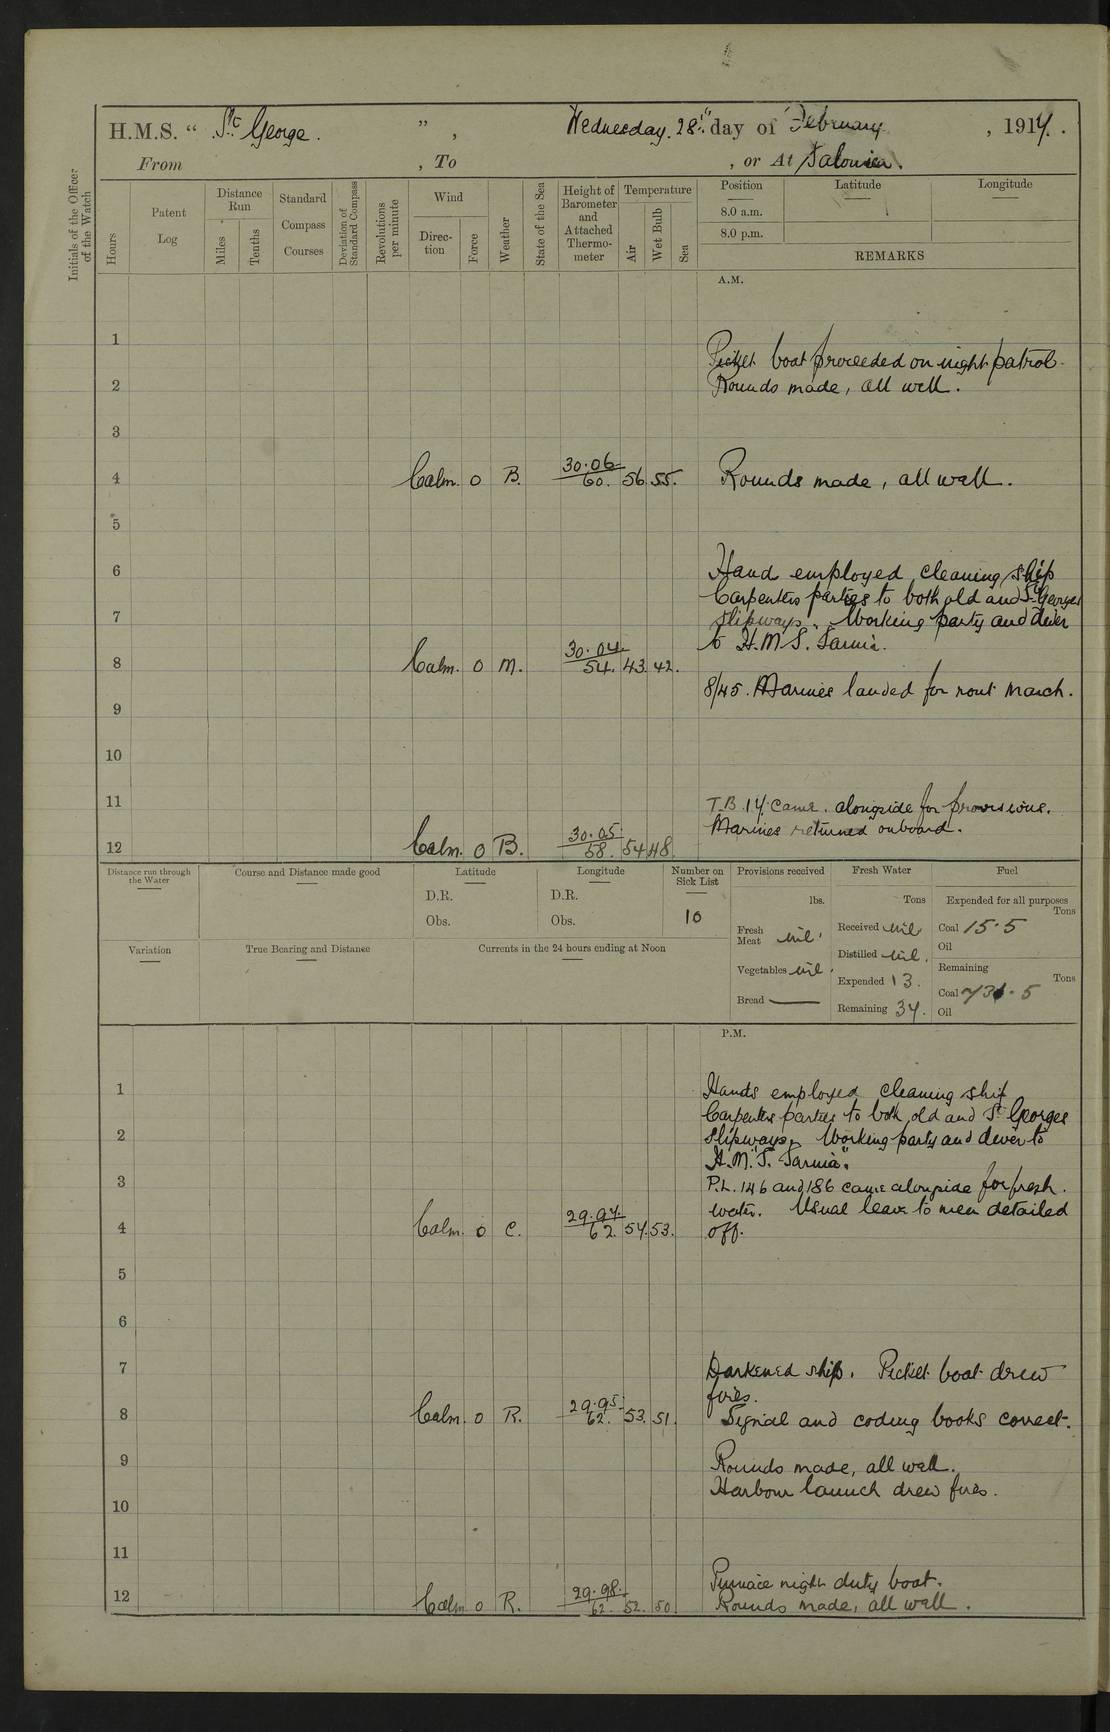 H.M.S. “ St. George. ” , Wednesday. 28th day of February , 1917.
From , To , or At Salonica.
Initials of the Officer of the Watch
Hours
Patent Log
Distance Run
Miles
Tenths
Standard Compass Courses
Deviation of Standard Compass
Revolutions per minute
Wind
Direc-tion
Force
Weather
State of the Sea
Height of Barometer and Attached Thermo-meter
Temperature
Air
Wet Bulb
Sea
Position
Latitude
Longitude
8.0 a.m.
8.0 p.m.
REMARKS
A.M.
1
Picket boat proceeded on night patrol.
2 Rounds made, all well.
3
4 Calm. 0 B. 30.06 60. 56. 55. Rounds made, all well.
5
6 Hand employed cleaning ship
Carpenters parties to both old and St. Georges
7 slipways. Working party and diver
to H.M.S. Sarnia.
8 Calm. 0 M. 30.04. 54. 43. 42.
8/45. Marines landed for rout march.
9
10
11 T.B. 17. came alongside for provisions.
Marines returned onboard.
12 Calm. 0 B. 30.05. 58. 54 48
Distance run through the Water
Course and Distance made good
Latitude
D.R.
Obs.
Longitude
D.R.
Obs.
Number on Sick List
10
Provisions received
lbs.
Fresh Meat nil.
Vegetables nil.
Bread —
Fresh Water
Tons
Received nil
Distilled nil.
Expended 13.
Remaining 37.
Fuel
Expended for all purposes
Tons
Coal 15.5
Oil
Remaining
Tons
Coal 731.5
Oil
Variation
True Bearing and Distance
Currents in the 24 hours ending at Noon
P.M.
1 Hands employed cleaning ship
Carpenters parties to both old and St. Georges
2 slipways. Working party and diver to
H.M.S. "Sarnia".
3 P.L. 146 and 186 came alongside for fresh
water. Usual leave to men detailed
4 Calm. 0 C. 29.97. 62. 57. 53. off.
5
6
7 Darkened ship. Picket boat drew
fires.
8 Calm. 0 R. 29.95. 62. 53. 51. Signal and coding books correct.
9 Rounds made, all well.
Harbour launch drew fires.
10
11
Pinnace night duty boat.
12 Calm 0 R. 29.98. 62. 52. 50. Rounds made, all well.